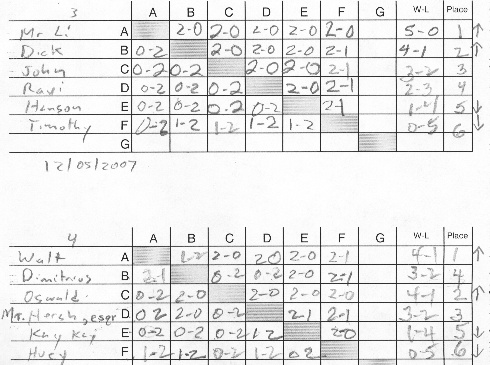 3 A B C D E F G W-L Place
Mr Li A 2-0 2-0 2-0 2-0 2-0 5-0 1 ↑
Dick B 0-2 2-0 2-0 2-0 2-1 4-1 2 ↑
John C 0-2 0-2 2-0 2-0 2-1 3-2 3
Ravi D 0-2 0-2 0-2 2-0 2-1 2-3 4
Henson E 0-2 0-2 0-2 0-2 2-1 1-4 5 ↓
Timothy F 0-2 1-2 1-2 1-2 1-2 0-5 6 ↓
G
12/05/2007
4 A B C D E F G W-L Place
Walt A 1-2 2-0 20 2-0 2-1 4-1 1 ↑
Dimitrius B 2-1 0-2 0-2 2-0 2-1 3-2 4
Oswald C 0-2 2-0 2-0 2-0 2-0 4-1 2 ↑
Mr. Hersh, esqr D 02 2-0 0-2 2-1 2-1 3-2 3
Kay Kay E 0-2 0-2 0-2 1-2 2-0 1-4 5 ↓
Huey F 1-2 1-2 0-2 1-2 02 0-5 6 ↓